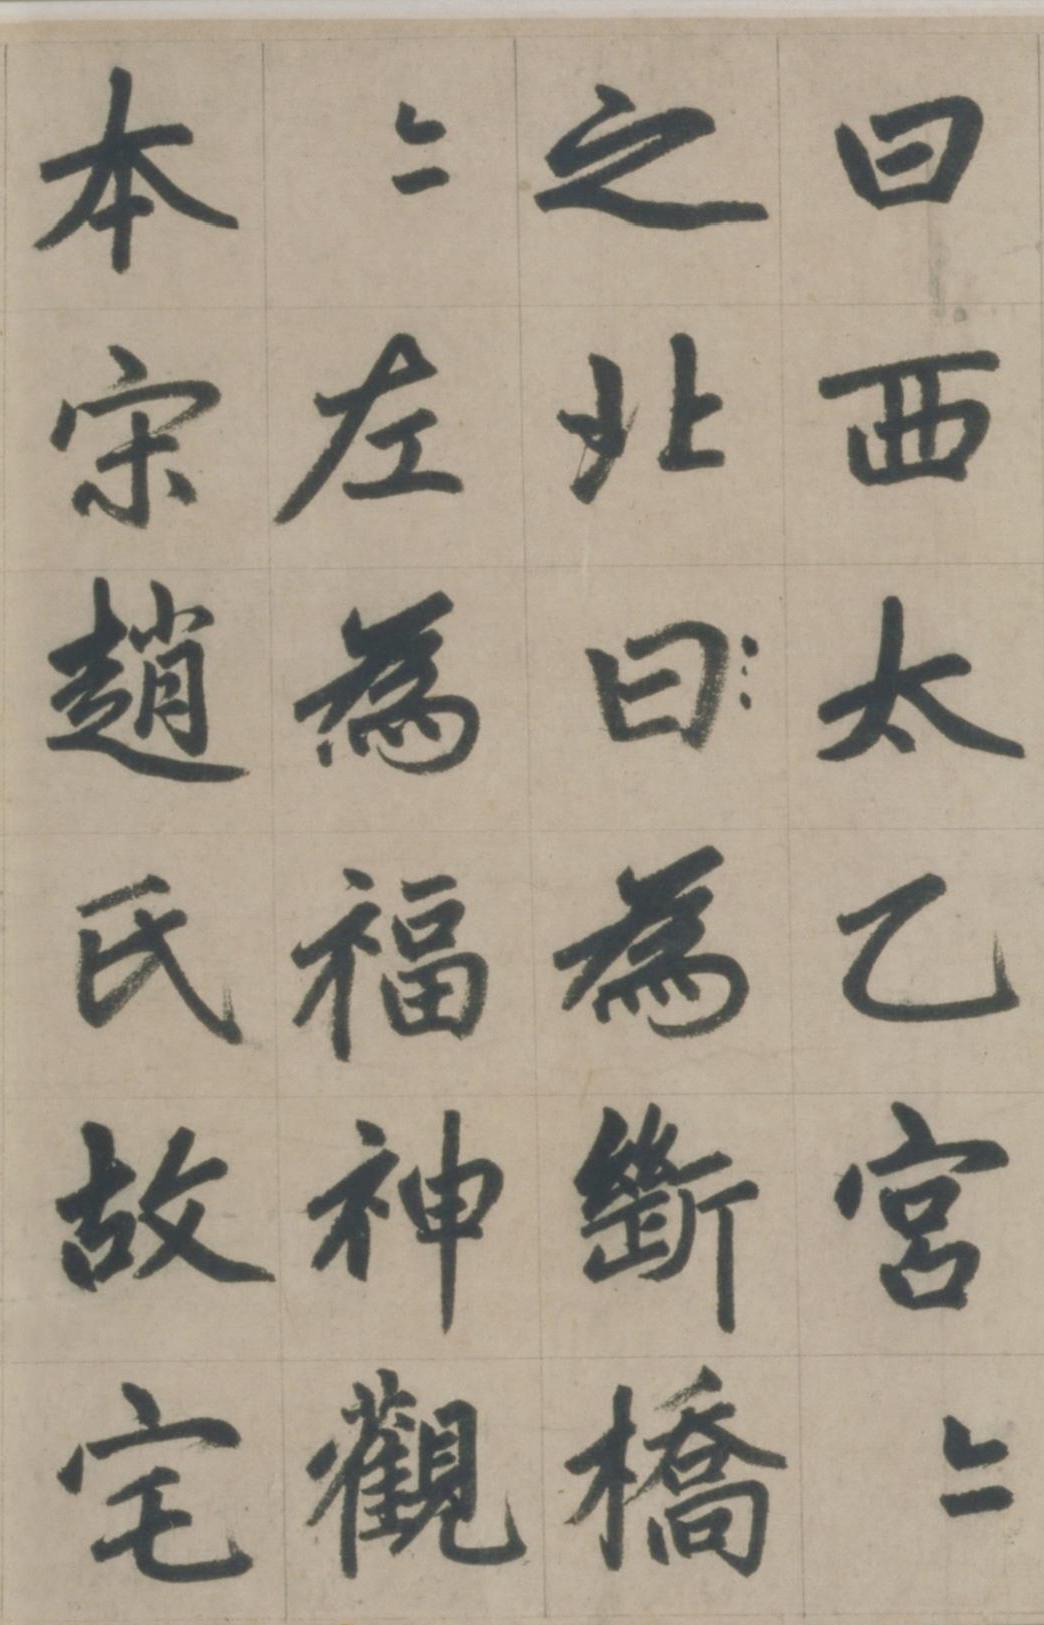 曰西太乙宮〻
之北曰為斷橋
〻左為福神觀
本宋趙氏故宅